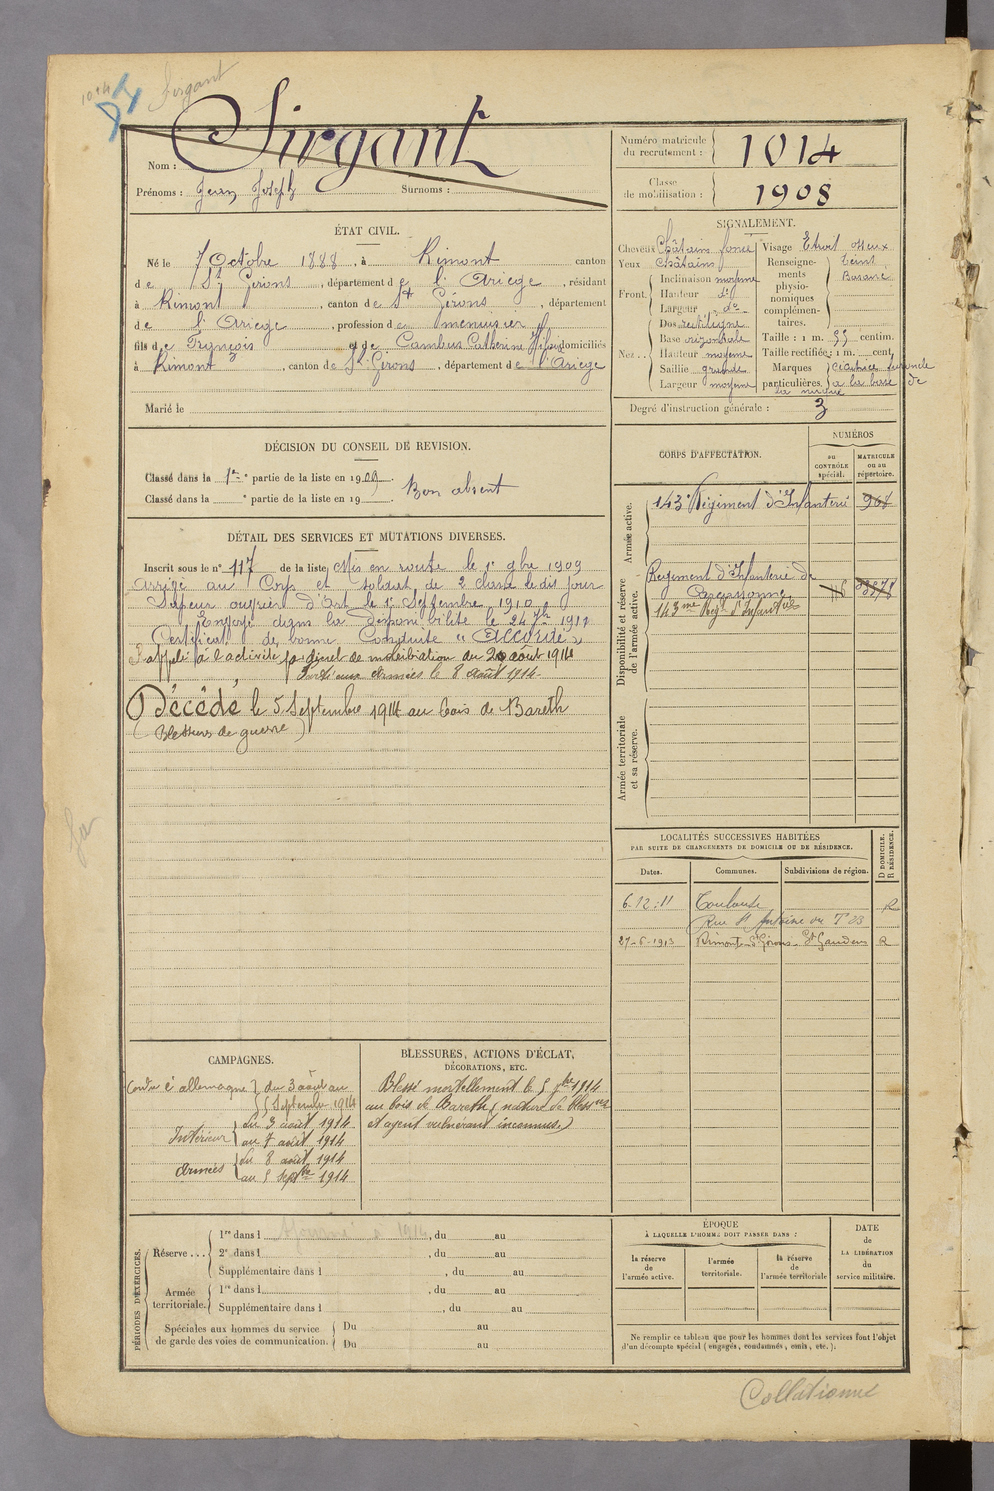 1014
Sirgant
Nom : Sirgant
Prénoms : Jean Joseph Surnoms :
Numéro matricule du recrutement : 1014
Classe de mobilisation : 1908
ÉTAT CIVIL.
Né le 7 Octobre 1888, à Rimont canton
de St Girons, département de l'Ariège, résidant
à Rimont, canton de St Girons, département
de l'Ariège, profession de menuisier
fils de François et de Cambus Catherine domiciliés
à Rimont, canton de St Girons, département de l'Ariège
Marié le
SIGNALEMENT.
Cheveux Châtains foncé
Yeux Châtains
Front. Inclinaison moyenne
Hauteur do
Largeur do
Nez... Dos rectiligne
Base orizontale
Hauteur moyenne
Saillie grande
Largeur moyenne
Visage Etroit osseux
Renseignements physionomiques complémentaires. Teint Basané
Taille : 1 m. 55 centim.
Taille rectifiée : 1 m. cent.
Marques particulières. cicatrice furoncle
à la base de
la nuque
Degré d'instruction générale : 3
DÉCISION DU CONSEIL DE REVISION.
Classé dans la 1re partie de la liste en 1909
Classé dans la e partie de la liste en 19
Bon absent
DÉTAIL DES SERVICES ET MUTATIONS DIVERSES.
Inscrit sous le no 117 de la liste Mis en route le 1er 8bre 1909
arrivé au Corps et soldat de 2 classe le dit jour
Sapeur ouvrier d'Art le 1er Septembre 1910
Envoyé dans la disponibilité le 24 7bre 1911
Certificat de bonne Conduite "Accordé"
Rappelé à l'activité décret de mobilisation du 2 août 1914
Parti aux Armées le 8 août 1914
Décédé le 5 Septembre 1914 au bois de Bareth
(Blessures de guerre)
CORPS D'AFFECTATION.
NUMÉROS
au CONTRÔLE spécial.
MATRICULE ou au répertoire.
Armée active.
143e Régiment d'Infanterie 968
Disponibilité et réserve de l'armée active.
Régiment d'Infanterie de
Carcassonne
143me Reg d'Infanterie
Armée territoriale et sa réserve.
LOCALITÉS SUCCESSIVES HABITÉES
PAR SUITE DE CHANGEMENTS DE DOMICILE OU DE RÉSIDENCE.
Dates. Communes. Subdivisions de région. D DOMICILE. R RÉSIDENCE.
6-12-11 Toulouse R
Rue St Antoine du T 23
27-6-1913 Rimont St Girons St Gaudens R
CAMPAGNES.
Contre l'allemagne du 3 août au
5 Septembre 1914
Intérieur du 3 août 1914
au 7 août 1914
Armées du 8 août 1914
au 5 septbre 1914
BLESSURES, ACTIONS D'ÉCLAT,
DÉCORATIONS, ETC.
Blessé mortellement le 5 7bre 1914
au bois de Bareth (nature de blessures
et agent vulnérant inconnus)
PÉRIODES D'EXERCICES.
Réserve...
1re dans l Ajourné à 1914, du au
2e dans l , du au
Supplémentaire dans l , du au
Armée territoriale.
1re dans l , du au
Supplémentaire dans l , du au
Spéciales aux hommes du service
de garde des voies de communication.
Du au
Du au
ÉPOQUE
À LAQUELLE L'HOMME DOIT PASSER DANS :
la réserve de l'armée active.
l'armée territoriale.
la réserve de l'armée territoriale
DATE DE LA LIBÉRATION du service militaire.
Ne remplir ce tableau que pour les hommes dont les services font l'objet
d'un décompte spécial (engagés, condamnés, omis, etc.).
Collationné